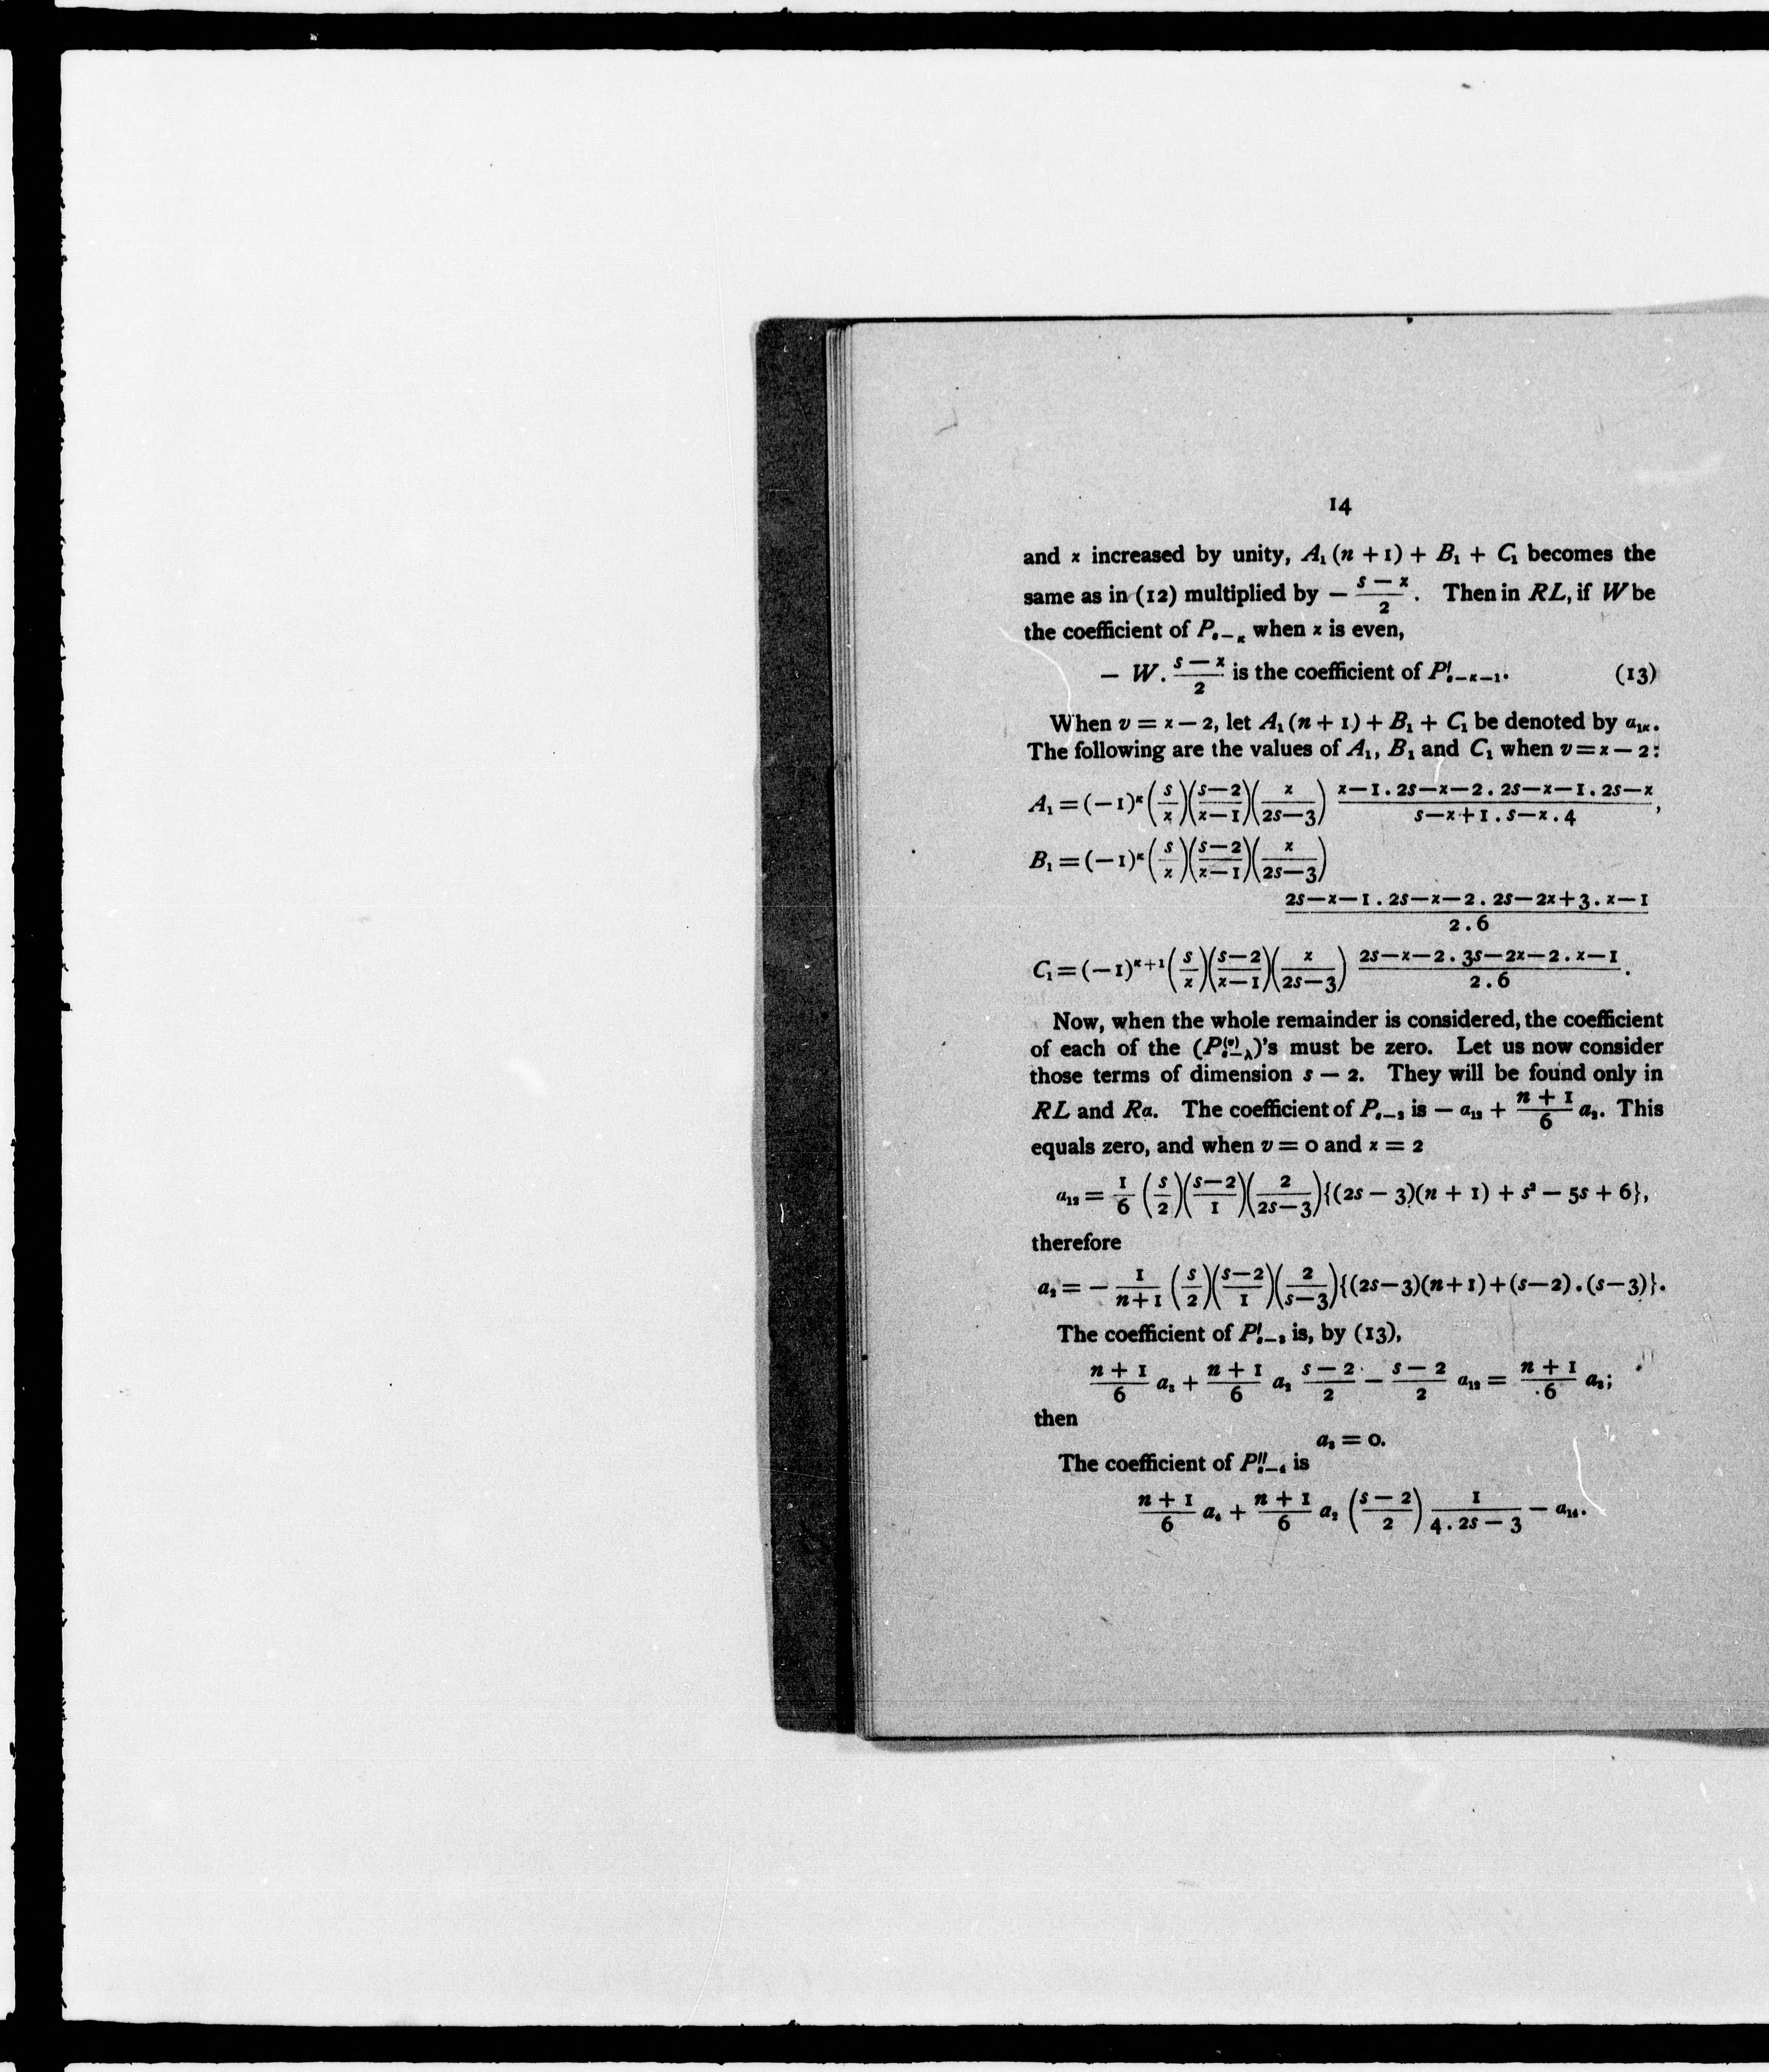 14
and ϰ increased by unity, A₁ (n + 1) + B₁ + C₁ becomes the
same as in (12) multiplied by − (s − ϰ)/2 . Then in RL, if W be
the coefficient of Pₛ₋κ when ϰ is even,
− W. (s − ϰ)/2 is the coefficient of P′ₛ₋κ₋₁. (13)
When v = ϰ − 2, let A₁ (n + 1) + B₁ + C₁ be denoted by a₁κ.
The following are the values of A₁, B₁ and C₁ when v = ϰ − 2:
A₁ = (−1)^κ (s/ϰ)((s−2)/(ϰ−1))(ϰ/(2s−3)) (ϰ−1 . 2s−ϰ−2 . 2s−ϰ−1 . 2s−ϰ)/(s−ϰ+1 . s−ϰ . 4),
B₁ = (−1)^κ (s/ϰ)((s−2)/(ϰ−1))(ϰ/(2s−3))
(2s−ϰ−1 . 2s−ϰ−2 . 2s−2ϰ+3 . ϰ−1)/(2 . 6)
C₁ = (−1)^(κ+1) (s/ϰ)((s−2)/(ϰ−1))(ϰ/(2s−3)) (2s−ϰ−2 . 3s−2ϰ−2 . ϰ−1)/(2 . 6).
Now, when the whole remainder is considered, the coefficient
of each of the (P⁽ᵛ⁾ₛ₋λ)'s must be zero. Let us now consider
those terms of dimension s − 2. They will be found only in
RL and Ra. The coefficient of Pₛ₋₂ is − a₁₂ + (n + 1)/6 a₂. This
equals zero, and when v = 0 and ϰ = 2
a₁₂ = 1/6 (s/2)((s−2)/1)(2/(2s−3)){(2s − 3)(n + 1) + s² − 5s + 6},
therefore
a₂ = − 1/(n+1) (s/2)((s−2)/1)(2/(s−3)){(2s−3)(n+1)+(s−2).(s−3)}.
The coefficient of P′ₛ₋₃ is, by (13),
(n + 1)/6 a₃ + (n + 1)/6 a₂ (s − 2)/2 − (s − 2)/2 a₁₂ = (n + 1)/6 a₃;
then
a₃ = 0.
The coefficient of P″ₛ₋₄ is
(n + 1)/6 a₄ + (n + 1)/6 a₂ ((s − 2)/2) 1/(4 . 2s − 3) − a₁₄.